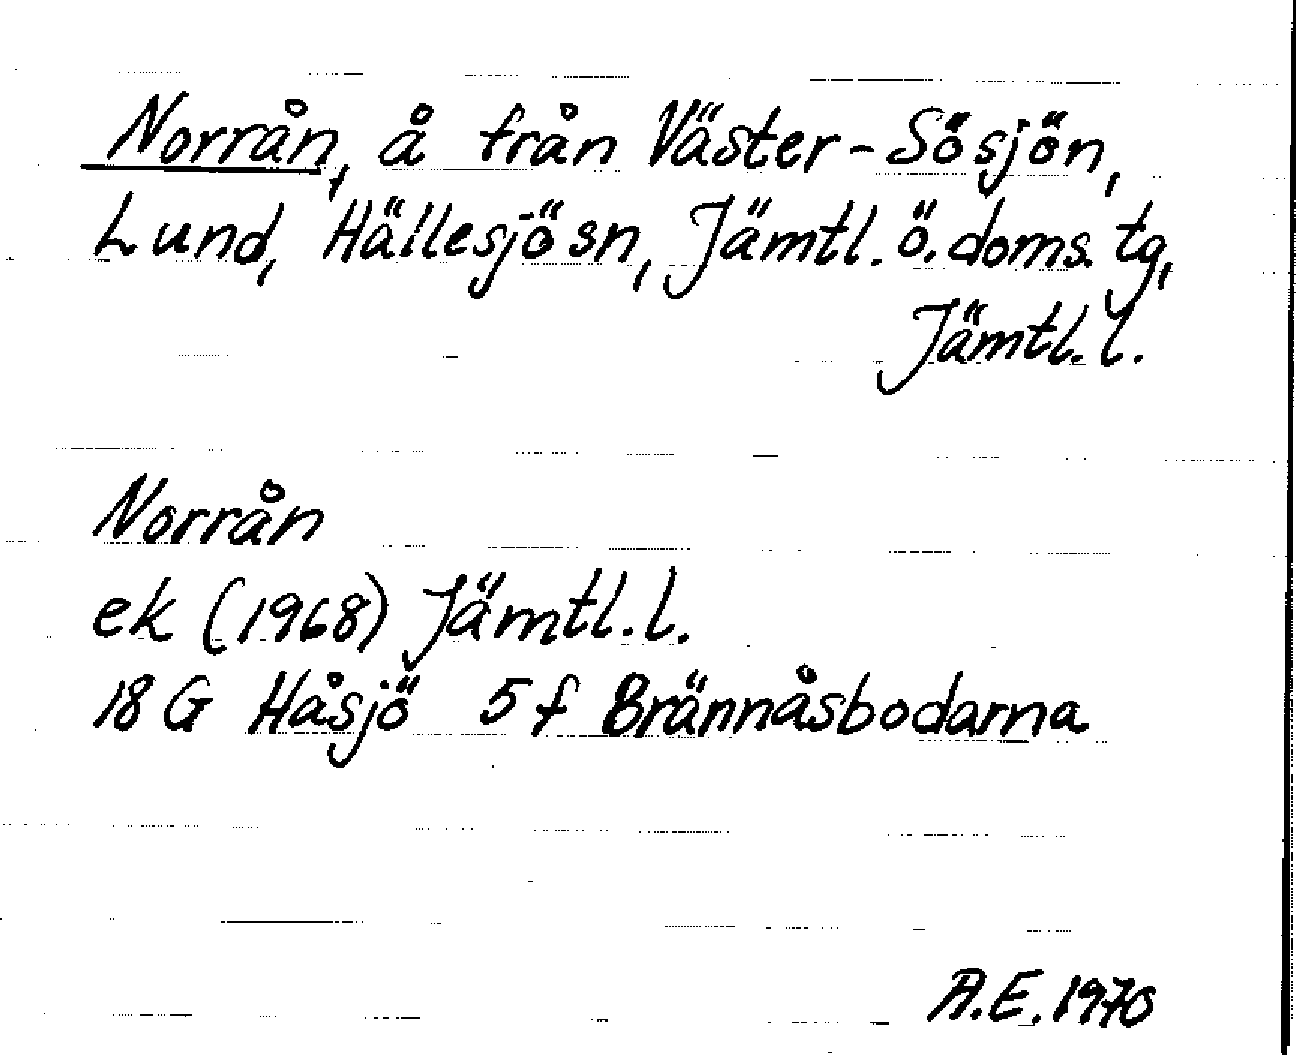 Norrån, å från Väster-Sösjön,
Lund, Hällesjö sn, Jämtl. ö. doms. tg,
Jämtl. l.
Norrån
ek (1968) Jämtl. l.
18 G Håsjö 5 f Brännåsbodarna
A.E. 1970